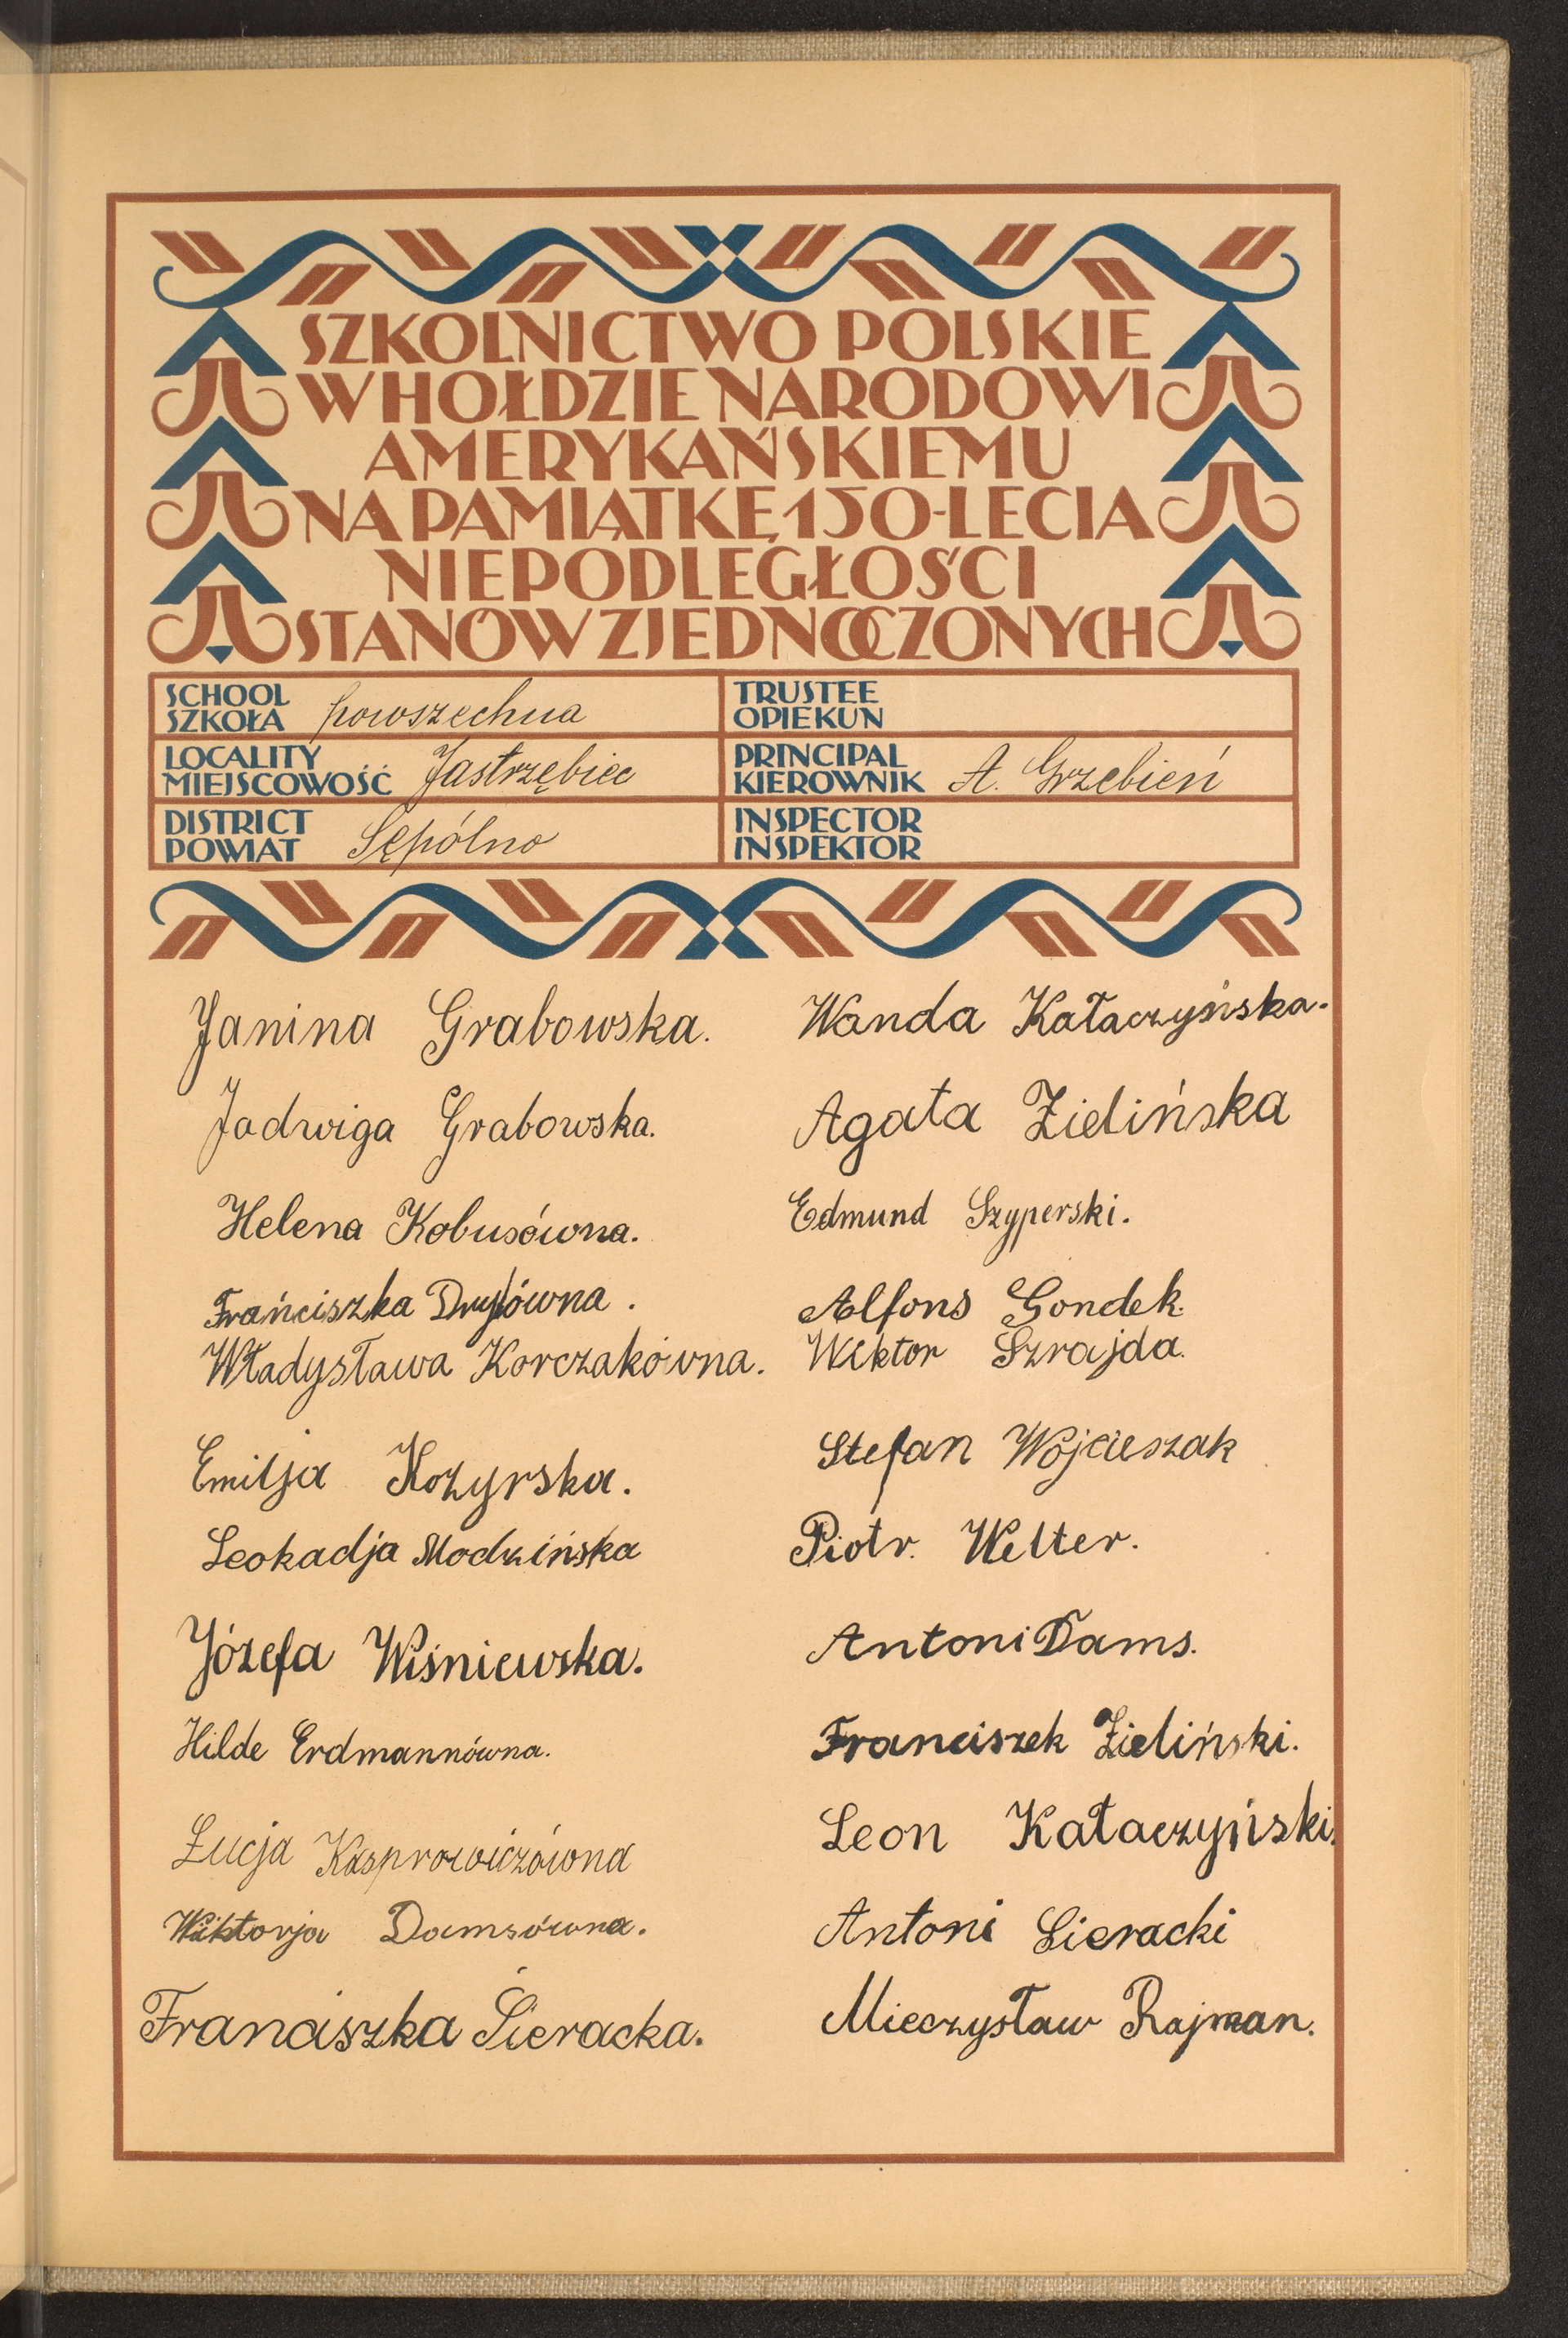 SZKOLNICTWO POLSKIE
W HOŁDZIE NARODOWI
AMERYKAŃSKIEMU
NA PAMIĄTKĘ 150-LECIA
NIEPODLEGŁOŚCI
STANÓW ZJEDNOCZONYCH
SCHOOL
SZKOŁA powszechna
TRUSTEE
OPIEKUN
LOCALITY
MIEJSCOWOŚĆ Jastrzębiec
PRINCIPAL
KIEROWNIK A. Grzebień
DISTRICT
POWIAT Sępólno
INSPECTOR
INSPEKTOR
Janina Grabowska.
Jadwiga Grabowska.
Helena Kobusówna.
Frańciszka
Władysława Korczakówna.
Emilja Kozyrska.
Leokadja Modzińska
Józefa Wiśniewska.
Hilde Erdmannówna.
Łucja Kasprowiczówna
Wiktorja Damsówna.
Franciszka Sieracka.
Wanda Kataczyńska.
Agata Zielińska
Edmund Szyperski.
Alfons Gondek.
Wiktor Szrajda.
Stefan Wojcieszak
Piotr. Welter.
Antoni Dams.
Franciszek Zieliński.
Leon Kataczyński.
Antoni Sieracki
Mieczysław Rajman.